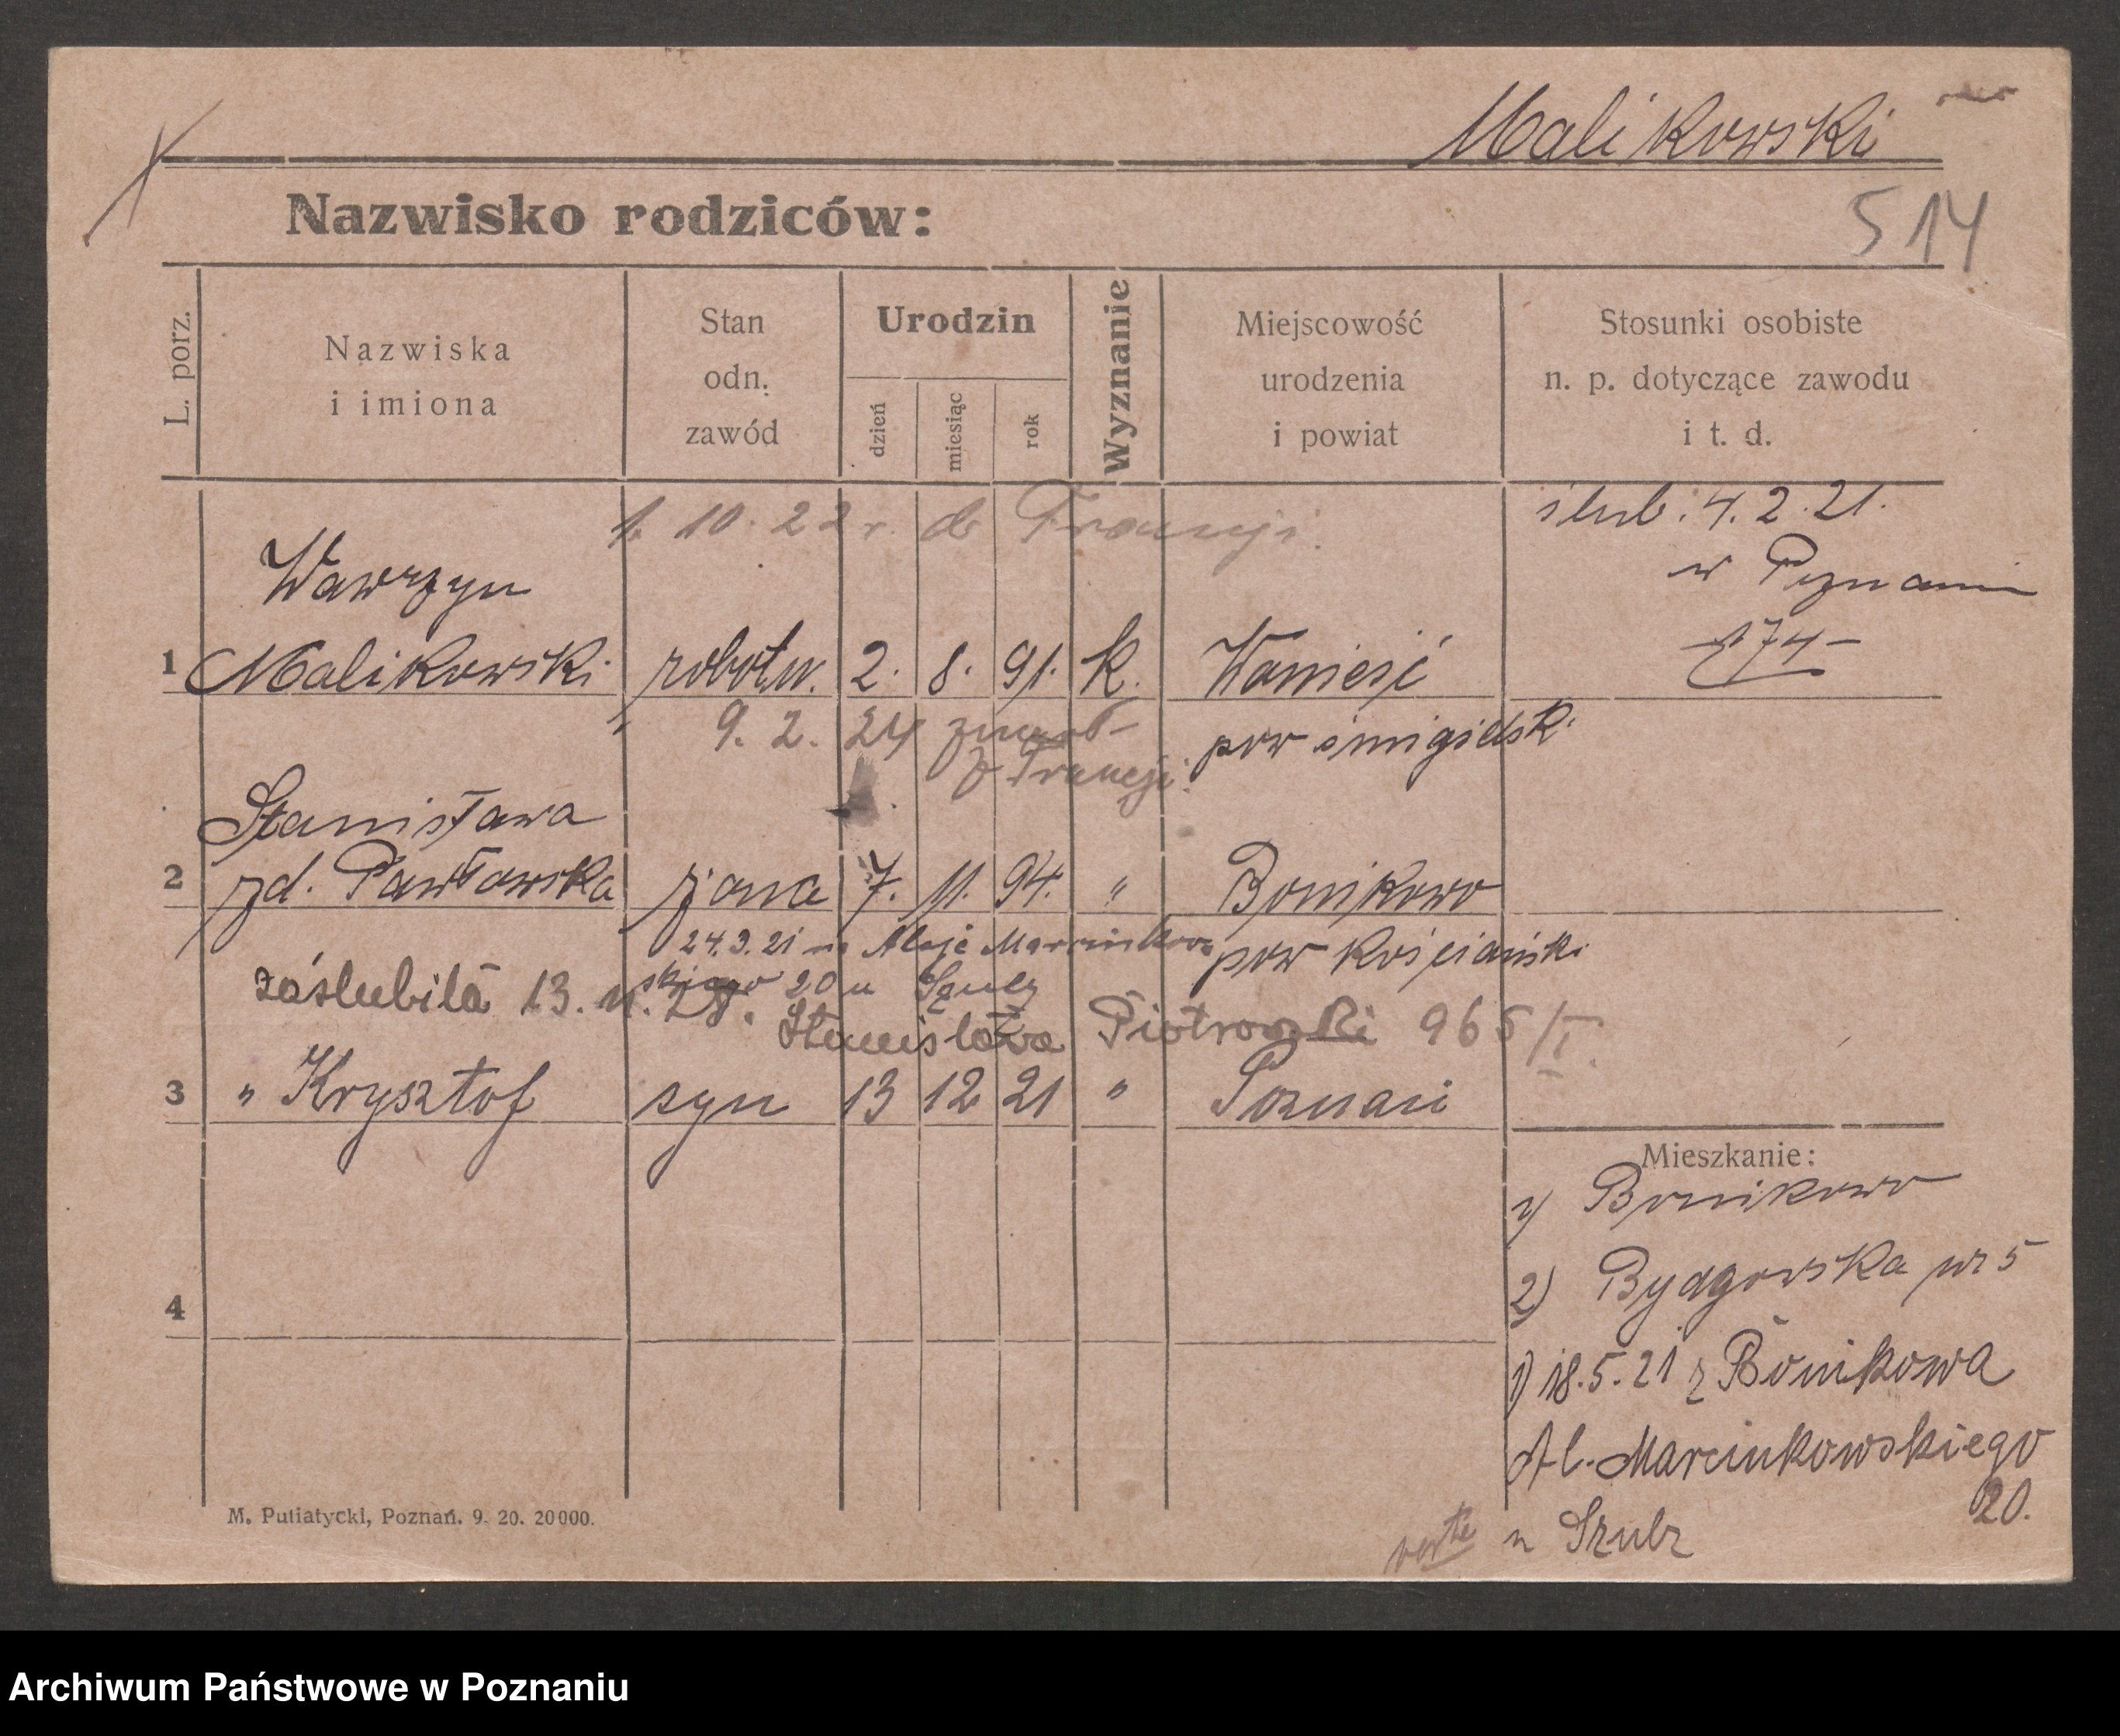 Malikowski
Nazwisko rodziców:
514
L. porz.
Nazwiska
i imiona
Stan
odn.
zawód
Urodzin
dzień
miesiąc
rok
Wyznanie
Miejscowość
urodzenia
i powiat
Stosunki osobiste
n. p. dotyczące zawodu
i t. d.
1. 10. 22 r. do Francji.
ślub: 4. 2. 21.
w Poznaniu
174
Wawrzyn
1 Malikowski robotn. 2. 8. 91. k. Wonieść
pow śmigielski
9. 2. 24 zmarł
w Francji.
Stanisława
2 zd. Pawłowska żona 7. 11. 94. " Bonikowo
pow Kościański
24.3.21 na Aleje Marcinkow
skiego 20 u Szulz
zaślubiła 13. 11. 28.
Stanisława Piotrowski 965/I.
3 " Krysztof syn 13 12 21 " Poznań
4
Mieszkanie:
1) Bonikowo
2) Bydgoska nr 5
1) 18.5.21 z Bonikowa
Al. Marcinkowskiego
20.
u Szulz
verte
M. Putiatycki, Poznań. 9. 20. 20000.
Archiwum Państwowe w Poznaniu